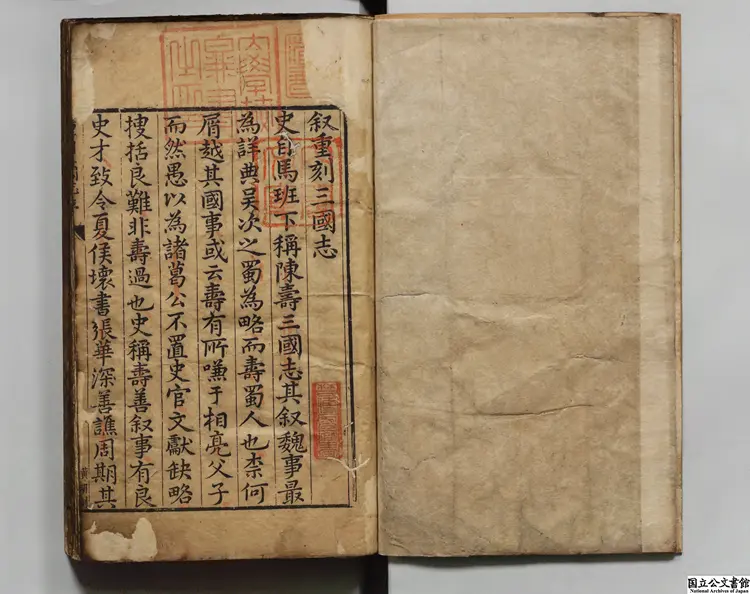 叙重刻三國志
史自馬班下稱陳壽三國志其叙魏事最
為詳典吴次之蜀為略而壽蜀人也柰何
屑越其國事或云壽有所嗛于相亮父子
而然愚以為諸葛公不置史官文獻缺略
捜括良難非壽過也史稱壽善叙事有良
史才致令夏侯壞書張華深善譙周期其
国立公文書館
National Archives of Japan